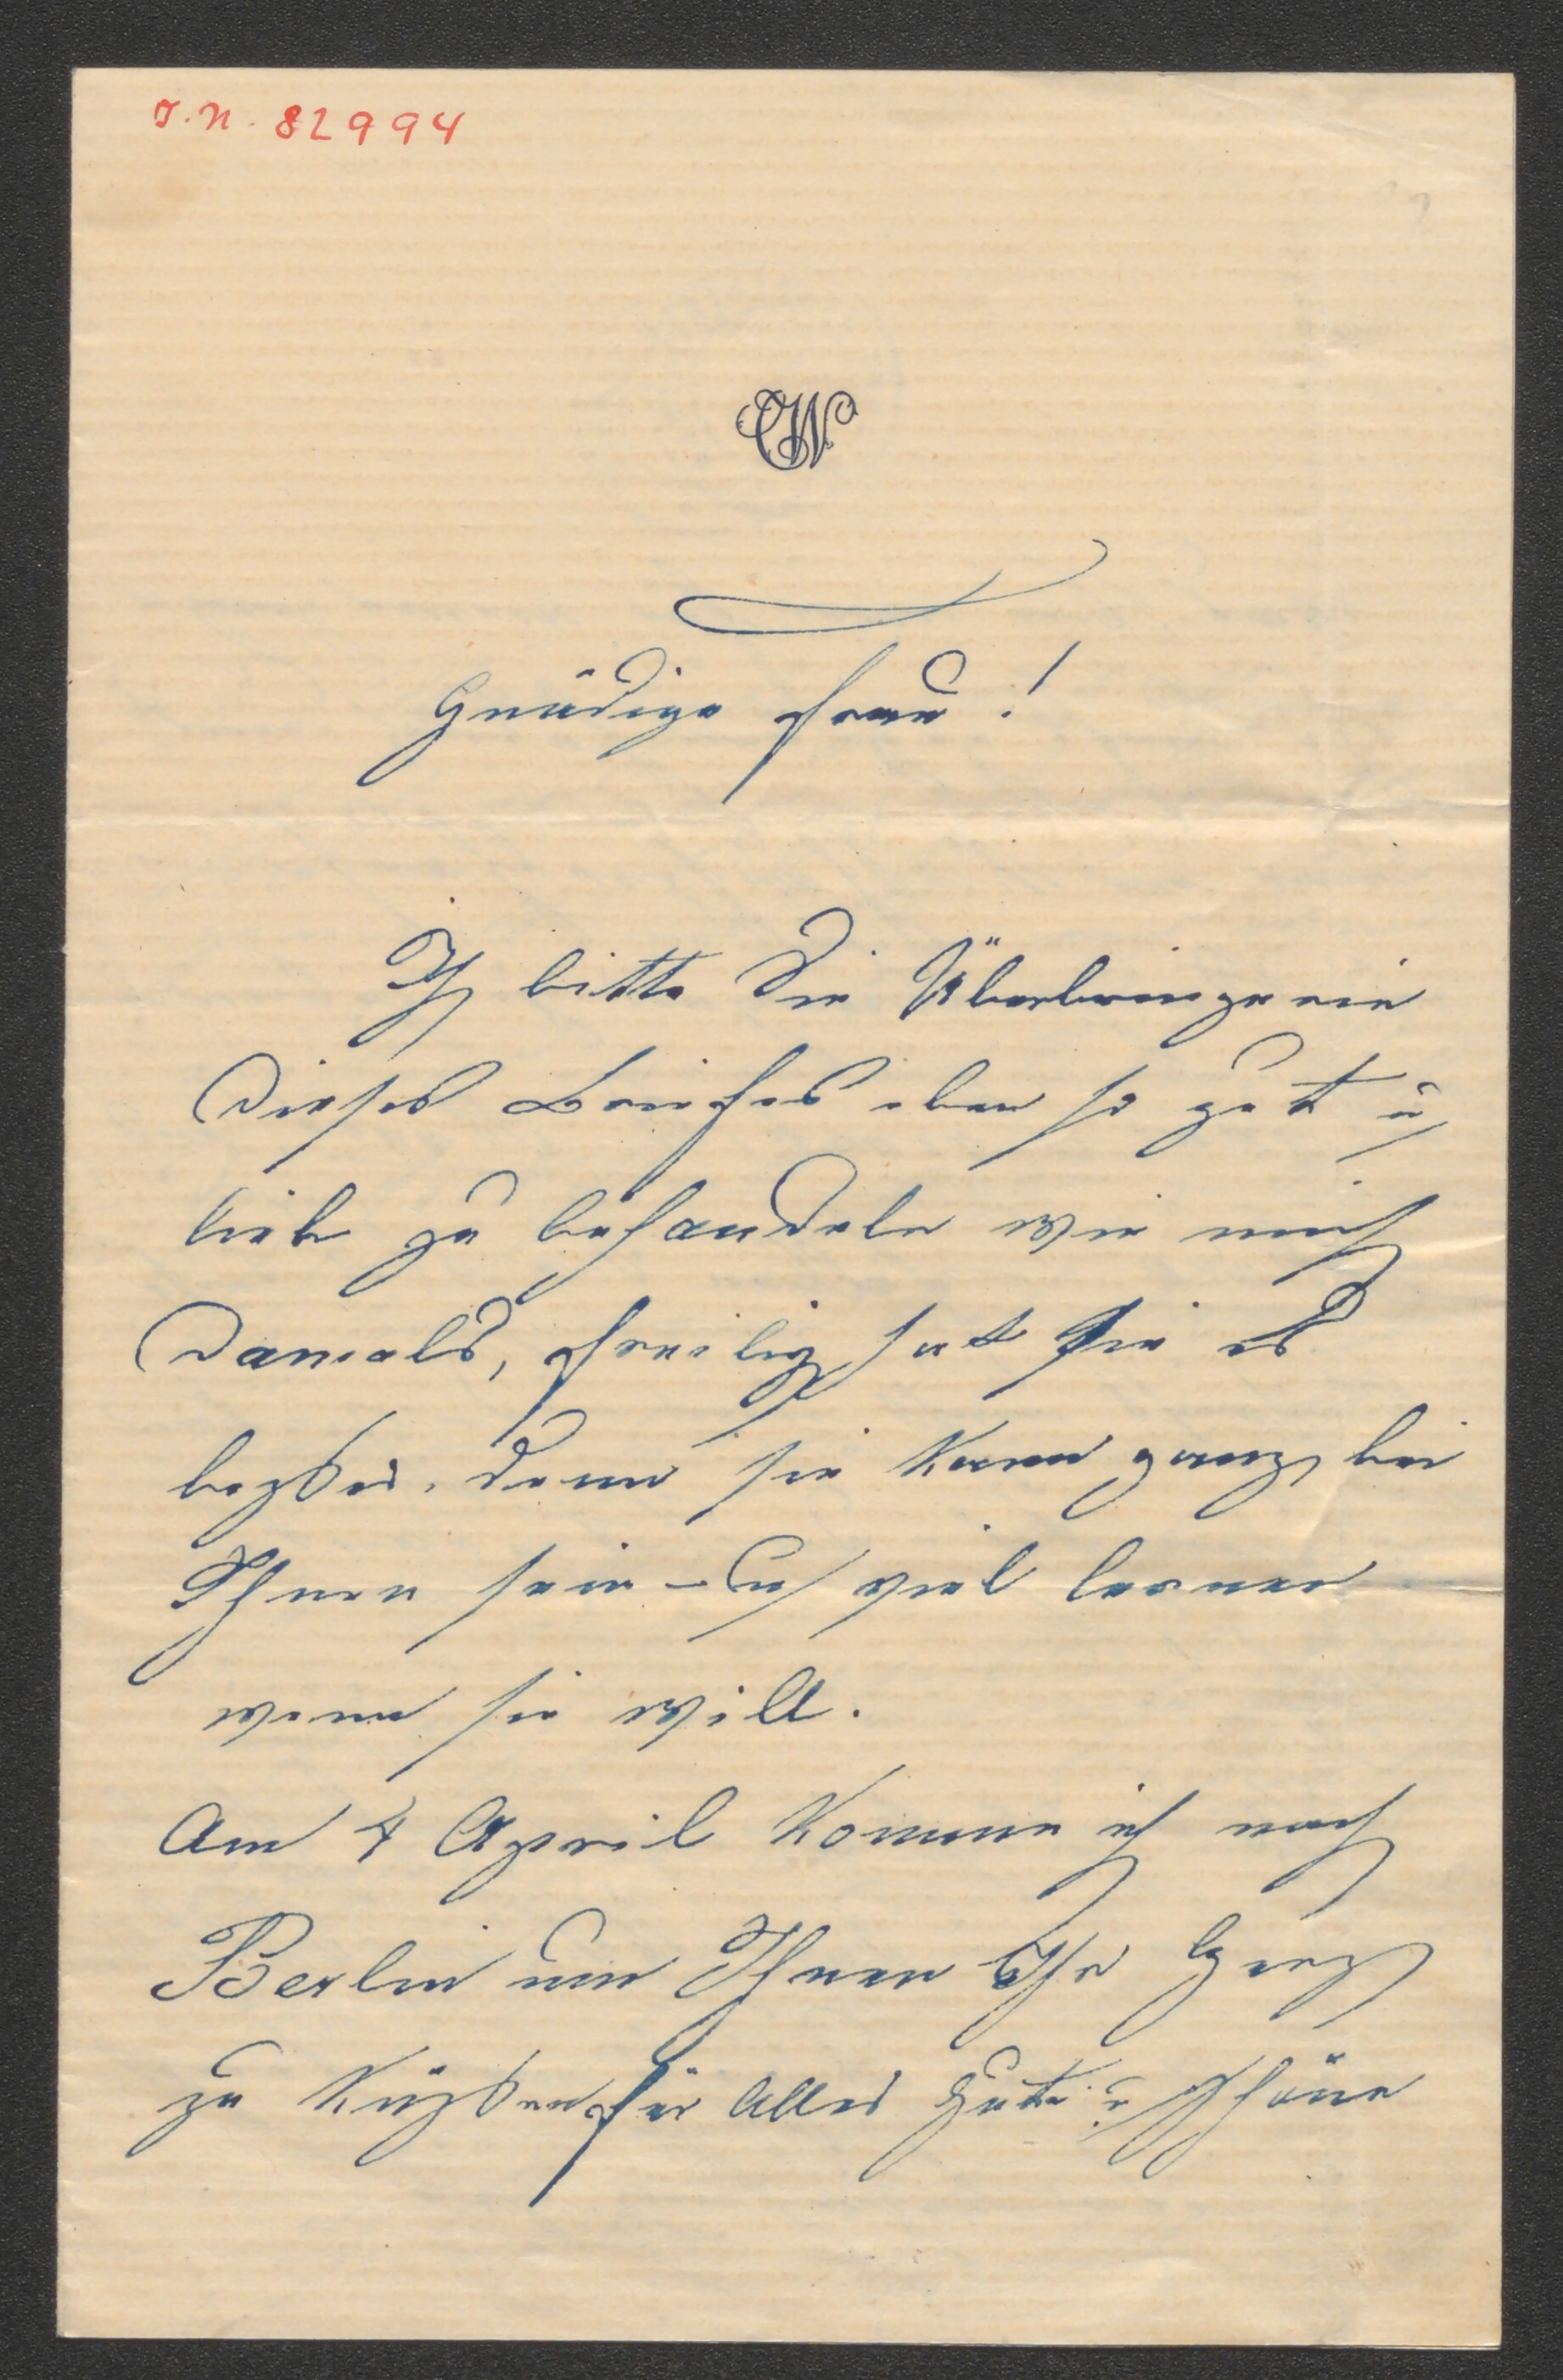 J.N. 82994
CW
Gnädige Frau!
Ich bitte die Überbringerin
dieses Briefes eben so gut u
lieb zu behandeln wie mich
damals, freilich hat sie es
beßer, denn sie kann ganz bei
Ihnen sein – u viel lernen
wenn sie will.
Am 4 April komme ich nach
Berlin um Ihnen Ihr Herz
zu küßen für Alles Gute u Schöne